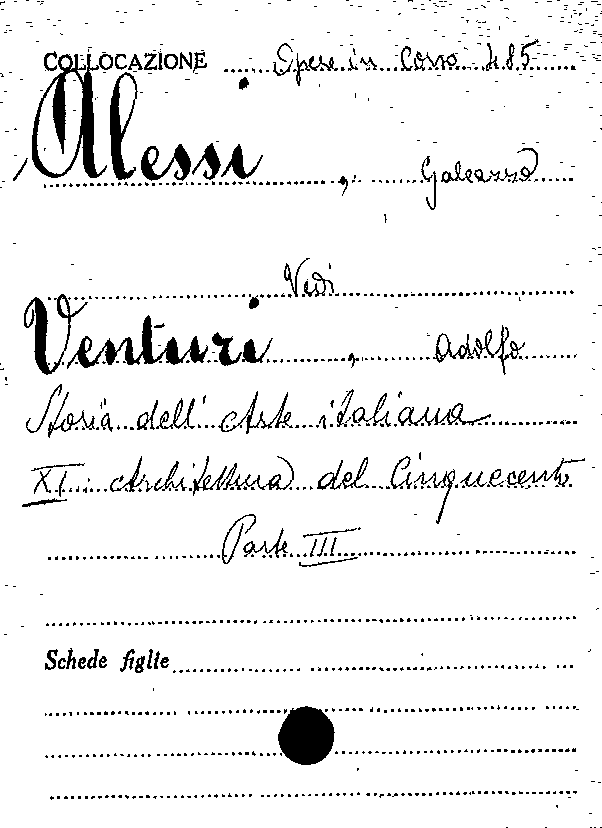 COLLOCAZIONE Opere in Corso 485
Alessi, Galeazzo
Vedi
Venturi, Adolfo
Storia dell' Arte italiana
XI. Architettura del Cinquecento
Parte III
Schede figlie